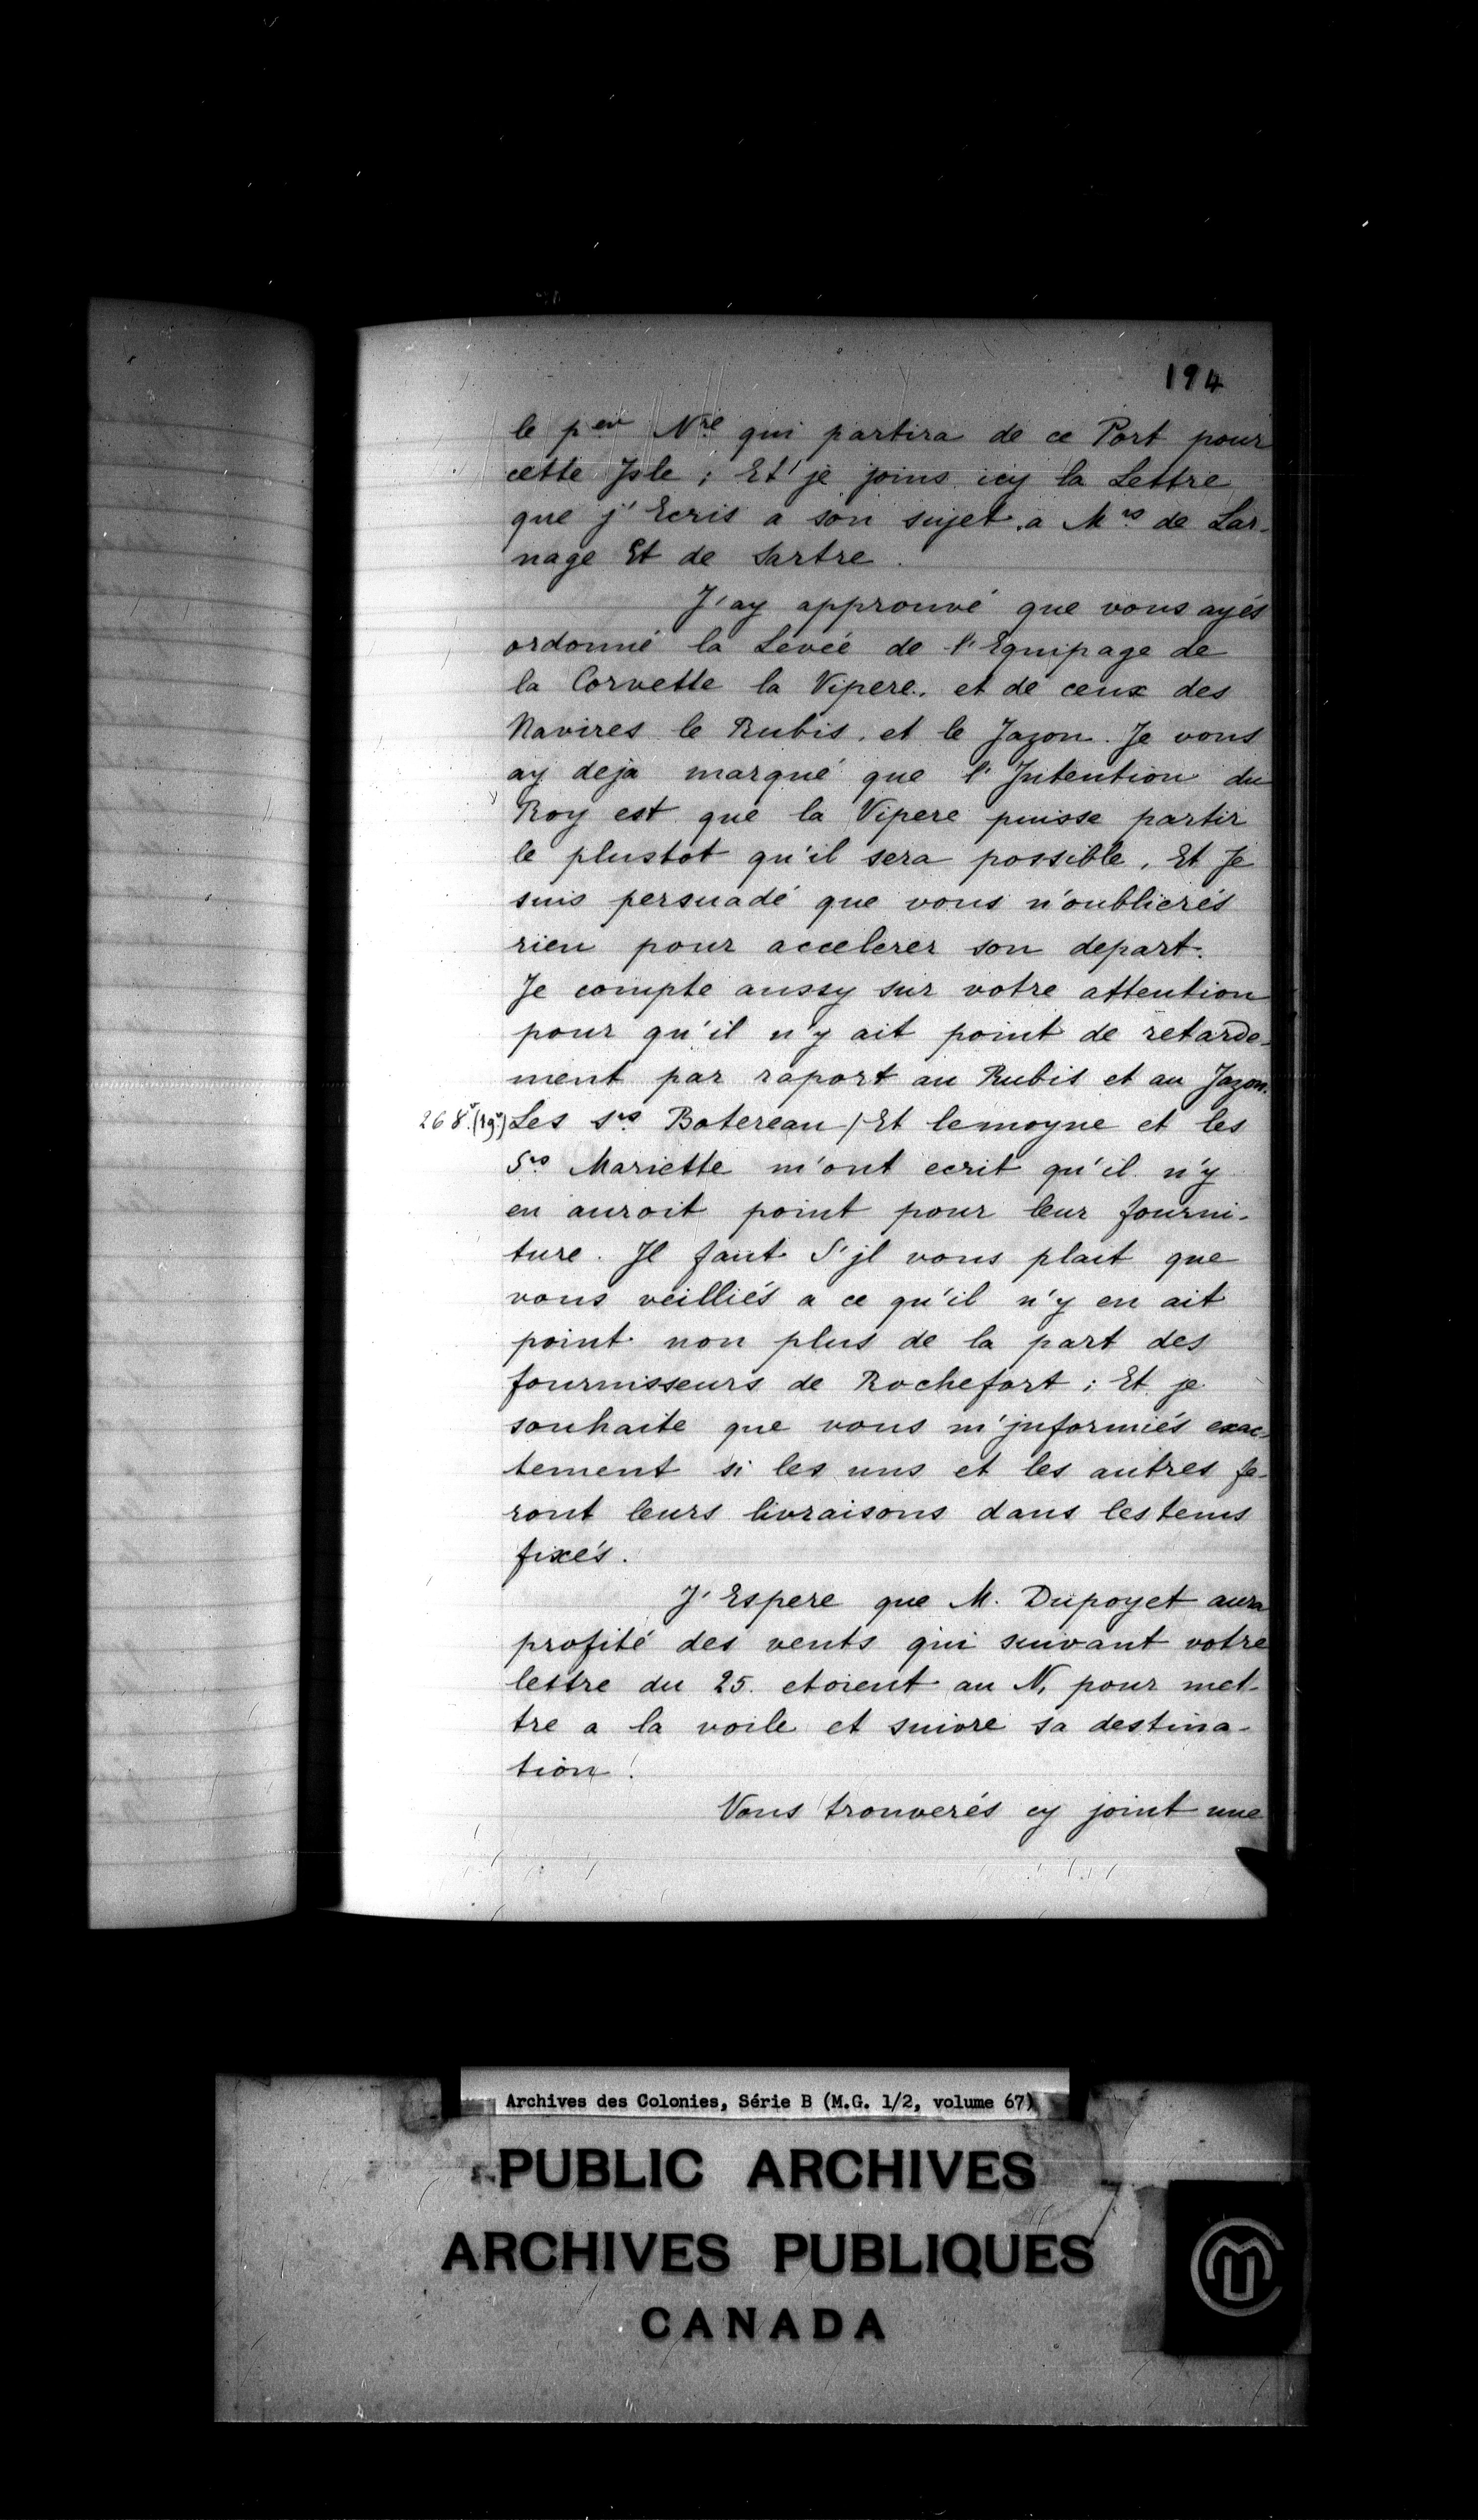 194
le p.er N.re qui partira de ce Port pour
cette Jsle ; Et je joins icy la Lettre
que j'Ecris a son sujet a M.rs de Lar-
nage Et de Sartre.
J'ay approuvé que vous ayés
ordonné la Levée de l'Equipage de
la Corvette la Vipere, et de ceux des
Navires le Rubis, et le Jazon. Je vous
ay deja marqué que l'Jntention du
Roy est que la Vipere puisse partir
le plustot qu'il sera possible, Et Je
suis persuadé que vous n'oublierés
rien pour accelerer son depart.
Je compte aussy sur votre attention
pour qu'il n'y ait point de retarde-
ment par raport au Rubis et au Jazon.
268 v. (19 v.) Les S.rs Botereau / Et lemoyne et les
S.rs Mariette m'ont ecrit qu'il n'y
en auroit point pour leur fourni-
ture. Jl faut S'jl vous plait que
vous veilliés a ce qu'il n'y en ait
point non plus de la part des
fournisseurs de Rochefort ; Et je
souhaite que vous m'jnformiés exac-
tement si les uns et les autres fe-
ront leurs livraisons dans les tems
fixés.
J'Espere que M. Dupoyet aura
profité des vents qui suivant votre
lettre du 25. etoient au N, pour met-
tre a la voile et suivre sa destina-
tion.
Vous trouverés cy joint une
Archives des Colonies, Série B (M.G. 1/2, volume 67)
PUBLIC ARCHIVES
ARCHIVES PUBLIQUES
CANADA